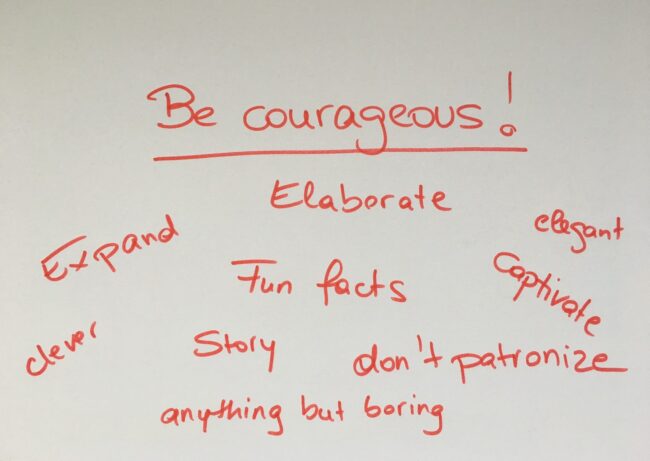 Be courageous!
Elaborate
elegant
Expand
Fun facts
Captivate
clever
Story
don't patronize
anything but boring